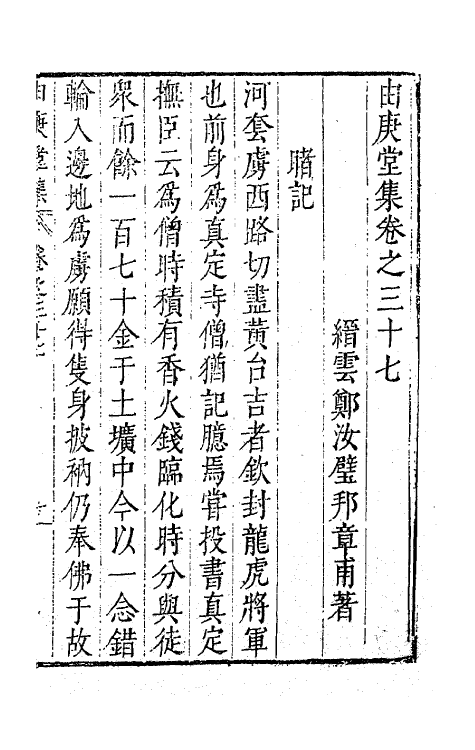 由庚堂集卷之三十七
縉雲鄭汝璧邦章甫著
睹記
河套虜西路切盡黃台吉者欽封龍虎將軍
也前身爲真定寺僧猶記臆焉嘗投書真定
撫臣云爲僧時積有香火錢臨化時分與徒
衆而餘一百七十金于土壙中今以一念錯
輪入邊地爲虜願得隻身披衲仍奉佛于故
由庚堂集